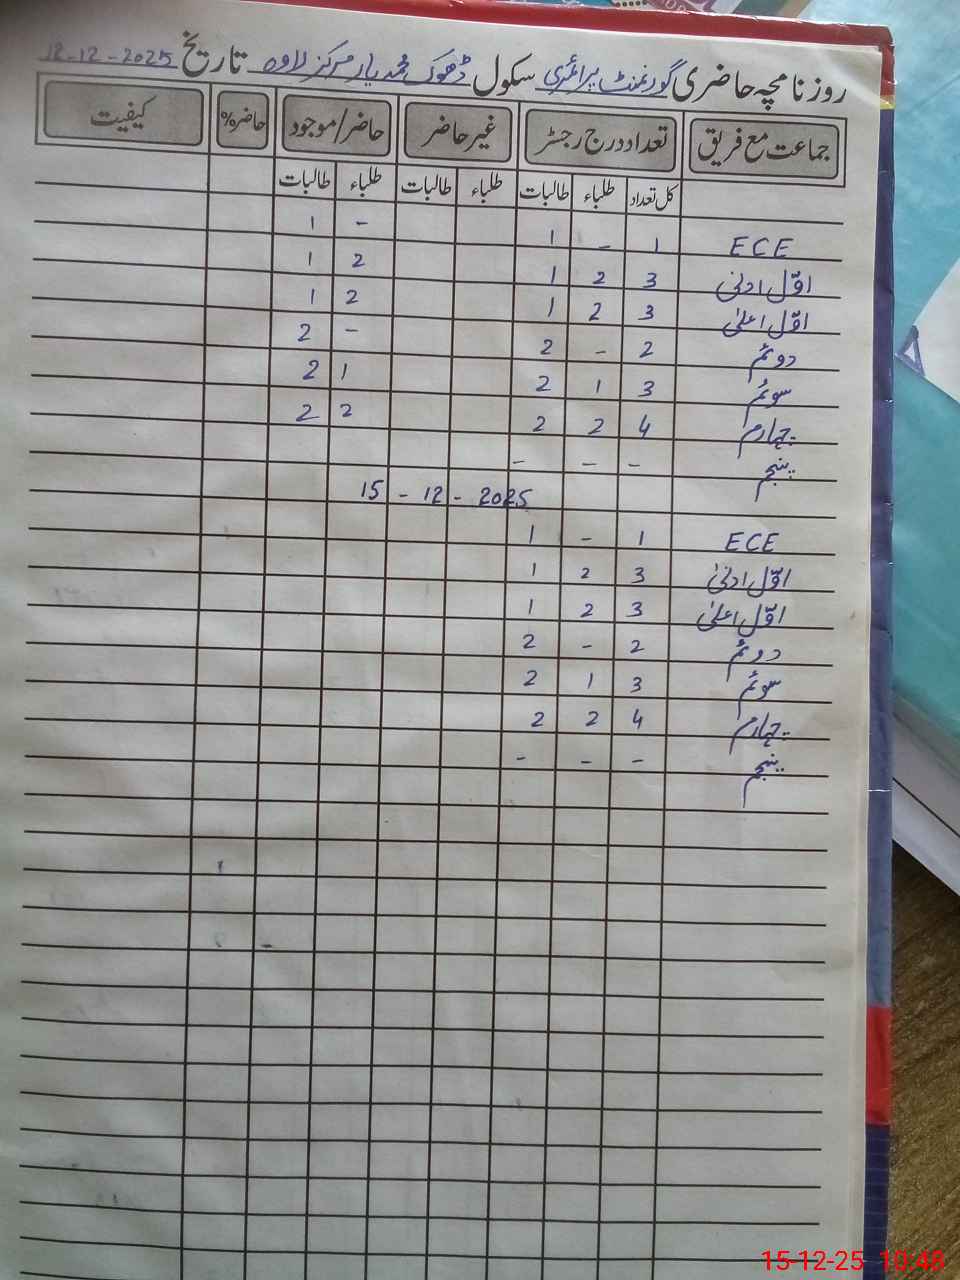 روزنامچہ حاضری گورنمنٹ پرائمری سکول ڈھوک محمد یار مرکز لاوہ تاریخ 12-12-2025
جماعت مع فریق تعداد درج رجسٹر غیر حاضر حاضر/موجود حاضر% کیفیت
کل تعداد طلباء طالبات طلباء طالبات طلباء طالبات
ECE 1 - 1 - 1
اوّل ادنیٰ 3 2 1 2 1
اوّل اعلیٰ 3 2 1 2 1
دوئم 2 - 2 - 2
سوئم 3 1 2 1 2
چہارم 4 2 2 2 2
پنجم - - -
15-12-2025
ECE 1 - 1
اوّل ادنیٰ 3 2 1
اوّل اعلیٰ 3 2 1
دوئم 2 - 2
سوئم 3 1 2
چہارم 4 2 2
پنجم - - -
15-12-25 10:48